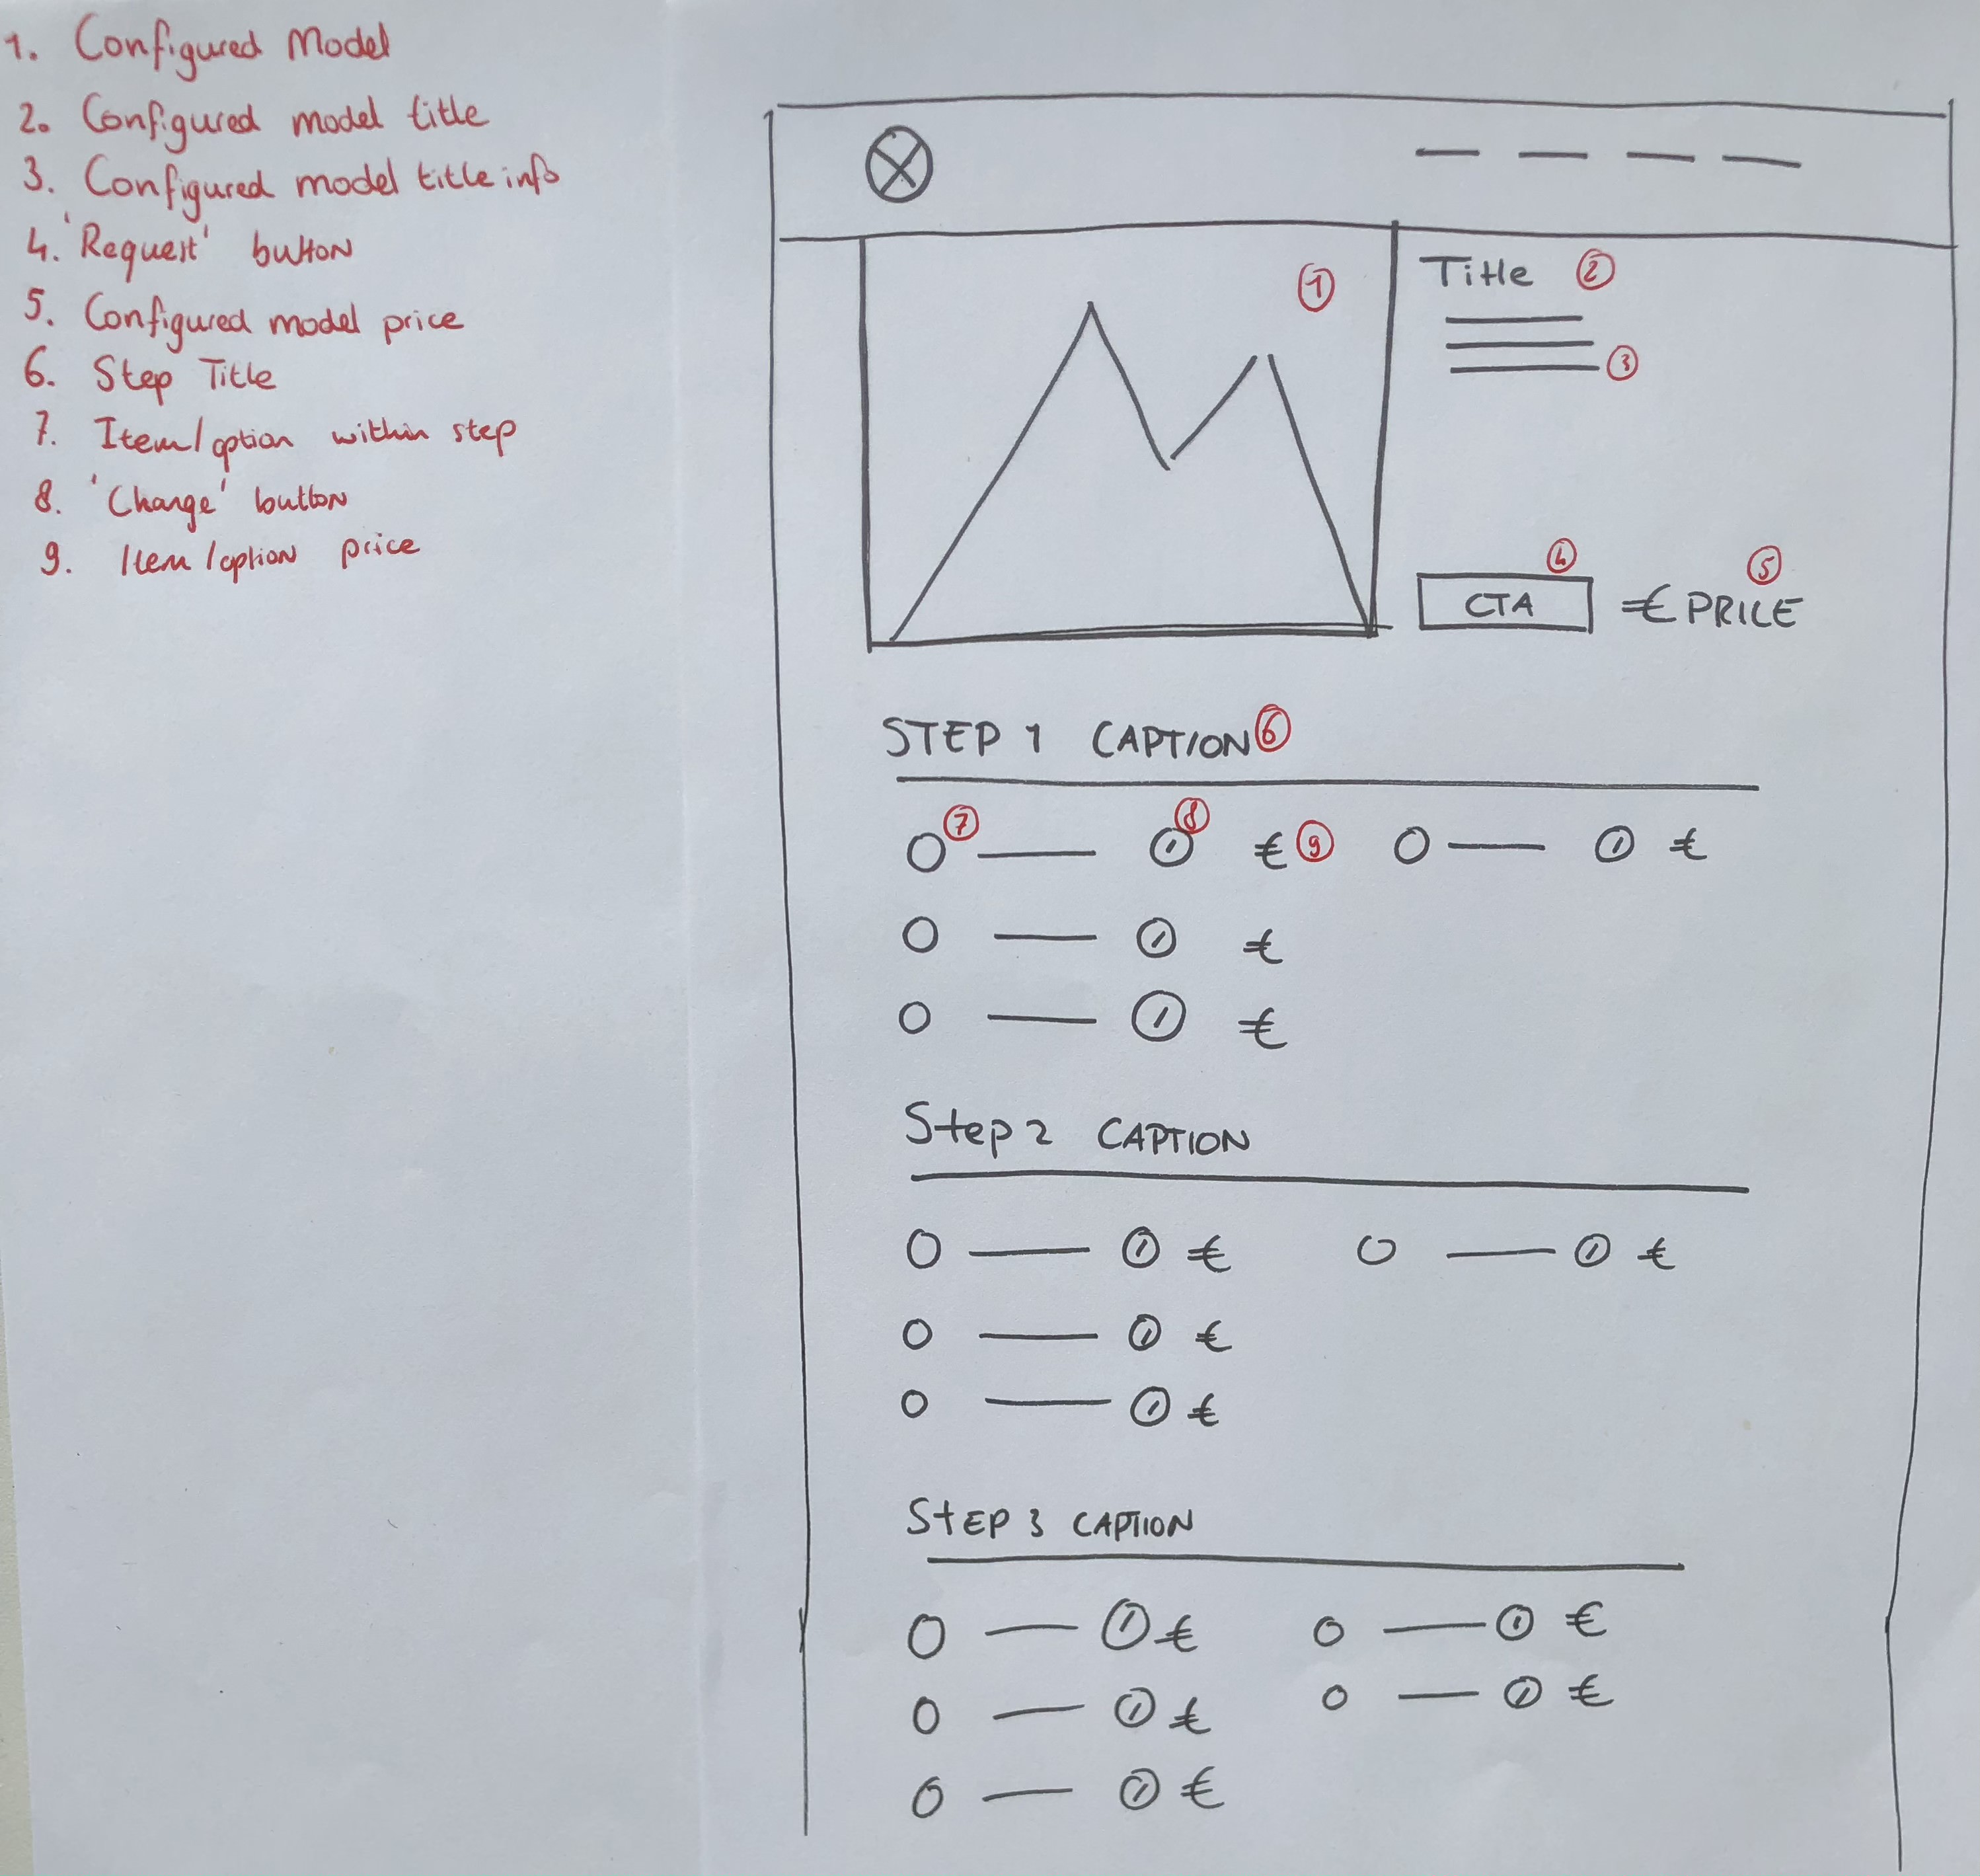 1. Configured Model
2. Configured model title
3. Configured model title info
4. 'Request' button
5. Configured model price
6. Step Title
7. Item/option within step
8. 'Change' button
9. Item/option price
1
Title 2
3
4
5
CTA € PRICE
STEP 1 CAPTION 6
7 8
€ 9 €
€
€
Step 2 CAPTION
€ €
€
€
STEP 3 CAPTION
€ €
€ €
€